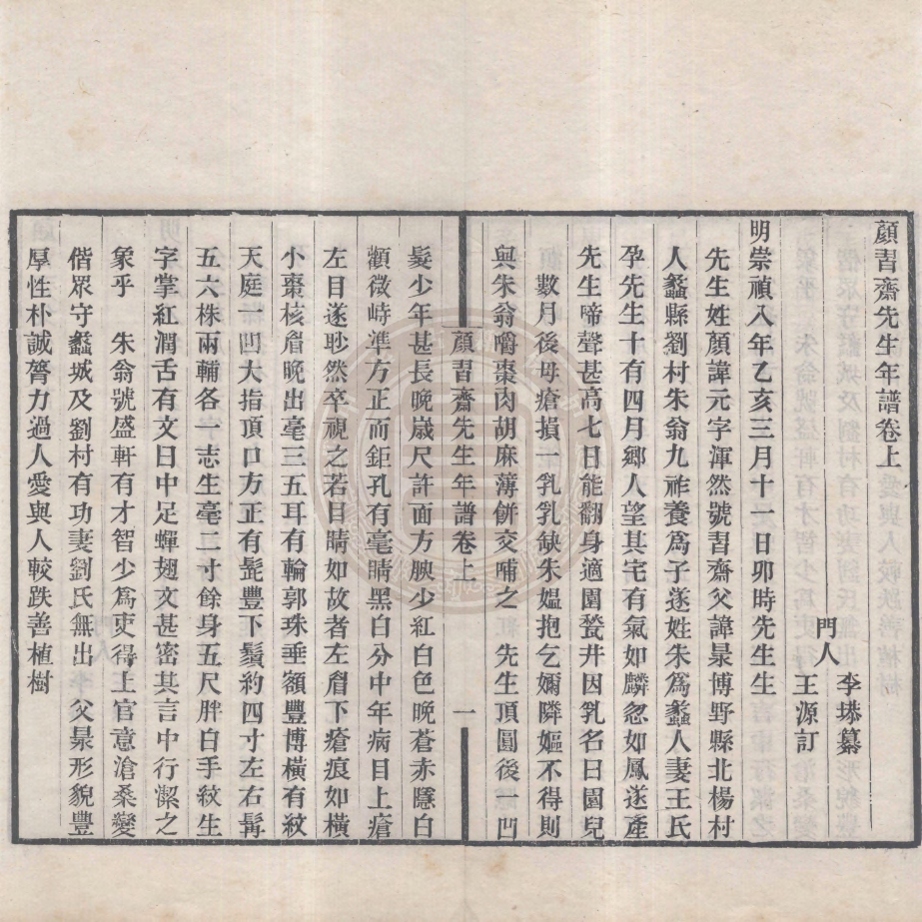 顏習齋先生年譜卷上
門人
李塨纂
王源訂
明崇禎八年乙亥三月十一日卯時先生生
先生姓顏諱元字渾然號習齋父諱㫤博野縣北楊村
人蠡縣劉村朱翁九祚養爲子遂姓朱爲蠡人妻王氏
孕先生十有四月鄉人望其宅有氣如麟忽如鳳遂產
先生啼聲甚高七日能翻身適園甃井因乳名曰園兒
數月後母瘡損一乳乳缺朱媼抱乞嬭隣嫗不得則
與朱翁嚼棗肉胡麻薄餅交哺之　先生頂圓後一凹
顏習齋先生年譜卷上
一
髮少年甚長晚歲尺許面方腴少紅白色晚蒼赤隱白
顴微峙準方正而鉅孔有毫睛黑白分中年病目上瘡
左目遂眇然卒視之若目睛如故者左眉下瘡痕如橫
小棗核眉晚出毫三五耳有輪郭珠垂額豐博橫有紋
天庭一凹大指頂口方正有髭豐下鬚約四寸左右髯
五六株兩輔各一志生毫二寸餘身五尺胖白手紋生
字掌紅潤舌有文曰中足蟬翅文甚密其言中行潔之
象乎　朱翁號盛軒有才智少爲吏得上官意滄桑變
偕眾守蠡城及劉村有功妻劉氏無出　父㫤形貌豐
厚性朴誠膂力過人愛與人較跌善植樹